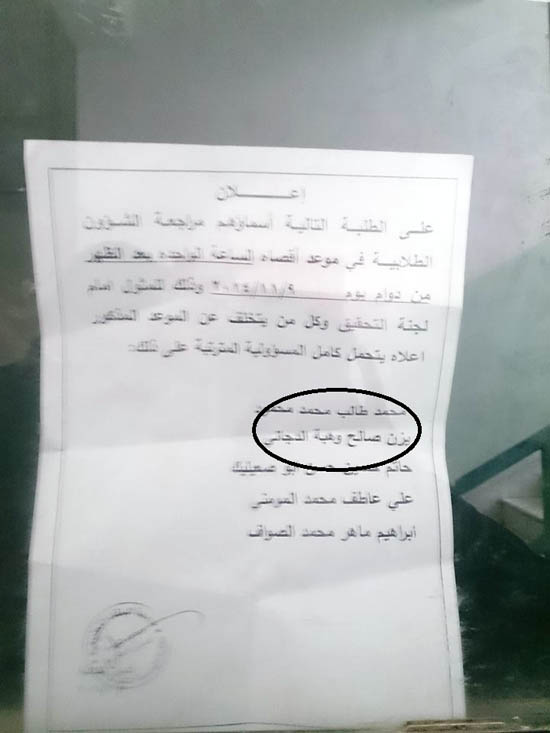 إعــــــــلان
على الطلبة التالية أسماؤهم مراجعة الشؤون
الطلابية في موعد أقصاه الساعة الواحده بعد الظهر
من دوام يوم ٢٠١٤/١١/٩ وذلك للمثول امام
لجنة التحقيق وكل من يتخلف عن الموعد المذكور
اعلاه يتحمل كامل المسؤولية المترتبة على ذلك:
محمد طالب محمد
يزن صالح وهبة الدجاني
حاتم حسين حسن ابو صعيليك
علي عاطف محمد المومني
ابراهيم ماهر محمد الصواف